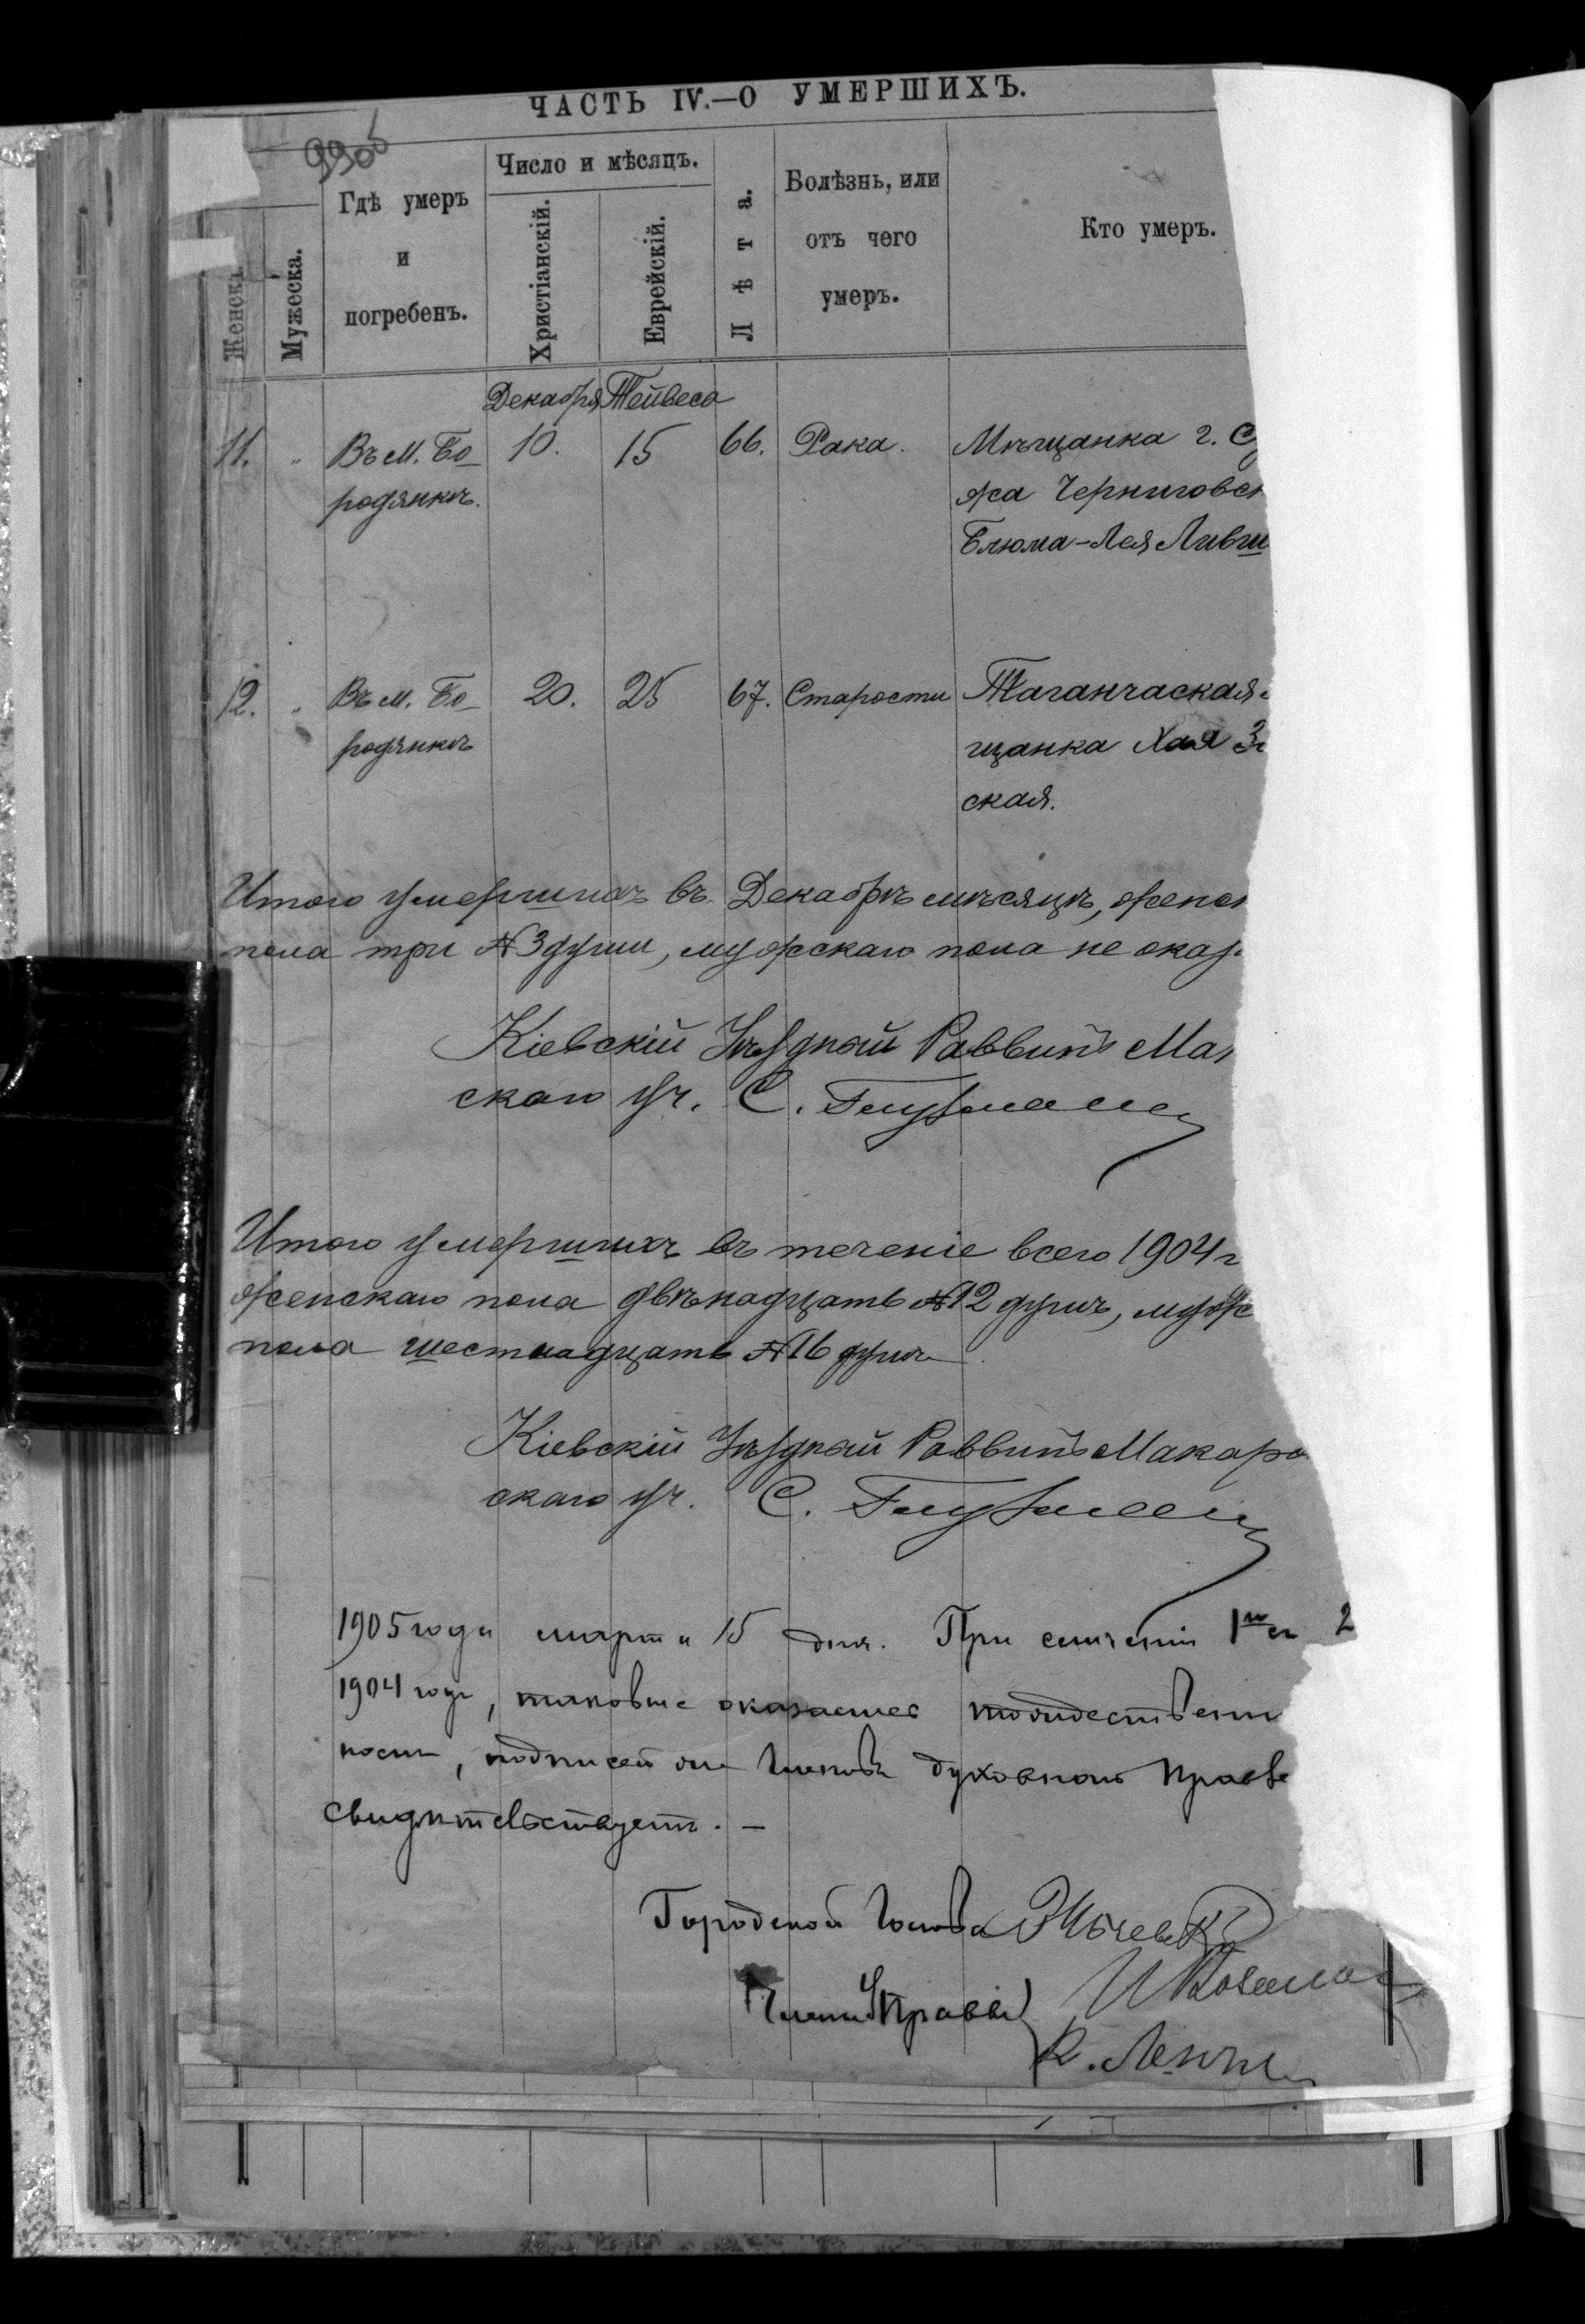 ЧАСТЬ IV.—О УМЕРШИХЪ.
990б
Женска.
Мужеска.
Гдѣ умеръ
и
погребенъ.
Число и мѣсяцъ.
Христіанскій.
Еврейскій.
Лѣта.
Болѣзнь, или
отъ чего
умеръ.
Кто умеръ.
Декабря Тейвеса
11. " Въ м. Бо- 10. 15 66. Рака. Мѣщанка г. С
родянкѣ. жа Черниговск
Блюма-Лея Ливш
12. " Въ м. Бо- 20. 25 67. Старости Таганчаская
родянкѣ щанка Хая З
ская.
Итого умершихъ въ Декабрѣ мѣсяцѣ, женск
пола три №3 души, мужскаго пола не оказ
Кіевскій Уѣздный Раввинъ Мак
скаго уч. С. Глузманъ
Итого умершихъ въ теченіе всего 1904 г
женскаго пола двѣнадцать №12 душъ, мужс
пола шестнадцать №16 душъ
Кіевскій Уѣздный Раввинъ Макаро
скаго уч. С. Глузманъ
1905 года марта 15 дня. При сличеніи 1го съ 2
1904 годъ, таковые оказались тождественн
ности, подписей же членовъ духовнаго правле
свидѣтельствуетъ. —
Городской Голова
Члены Управы